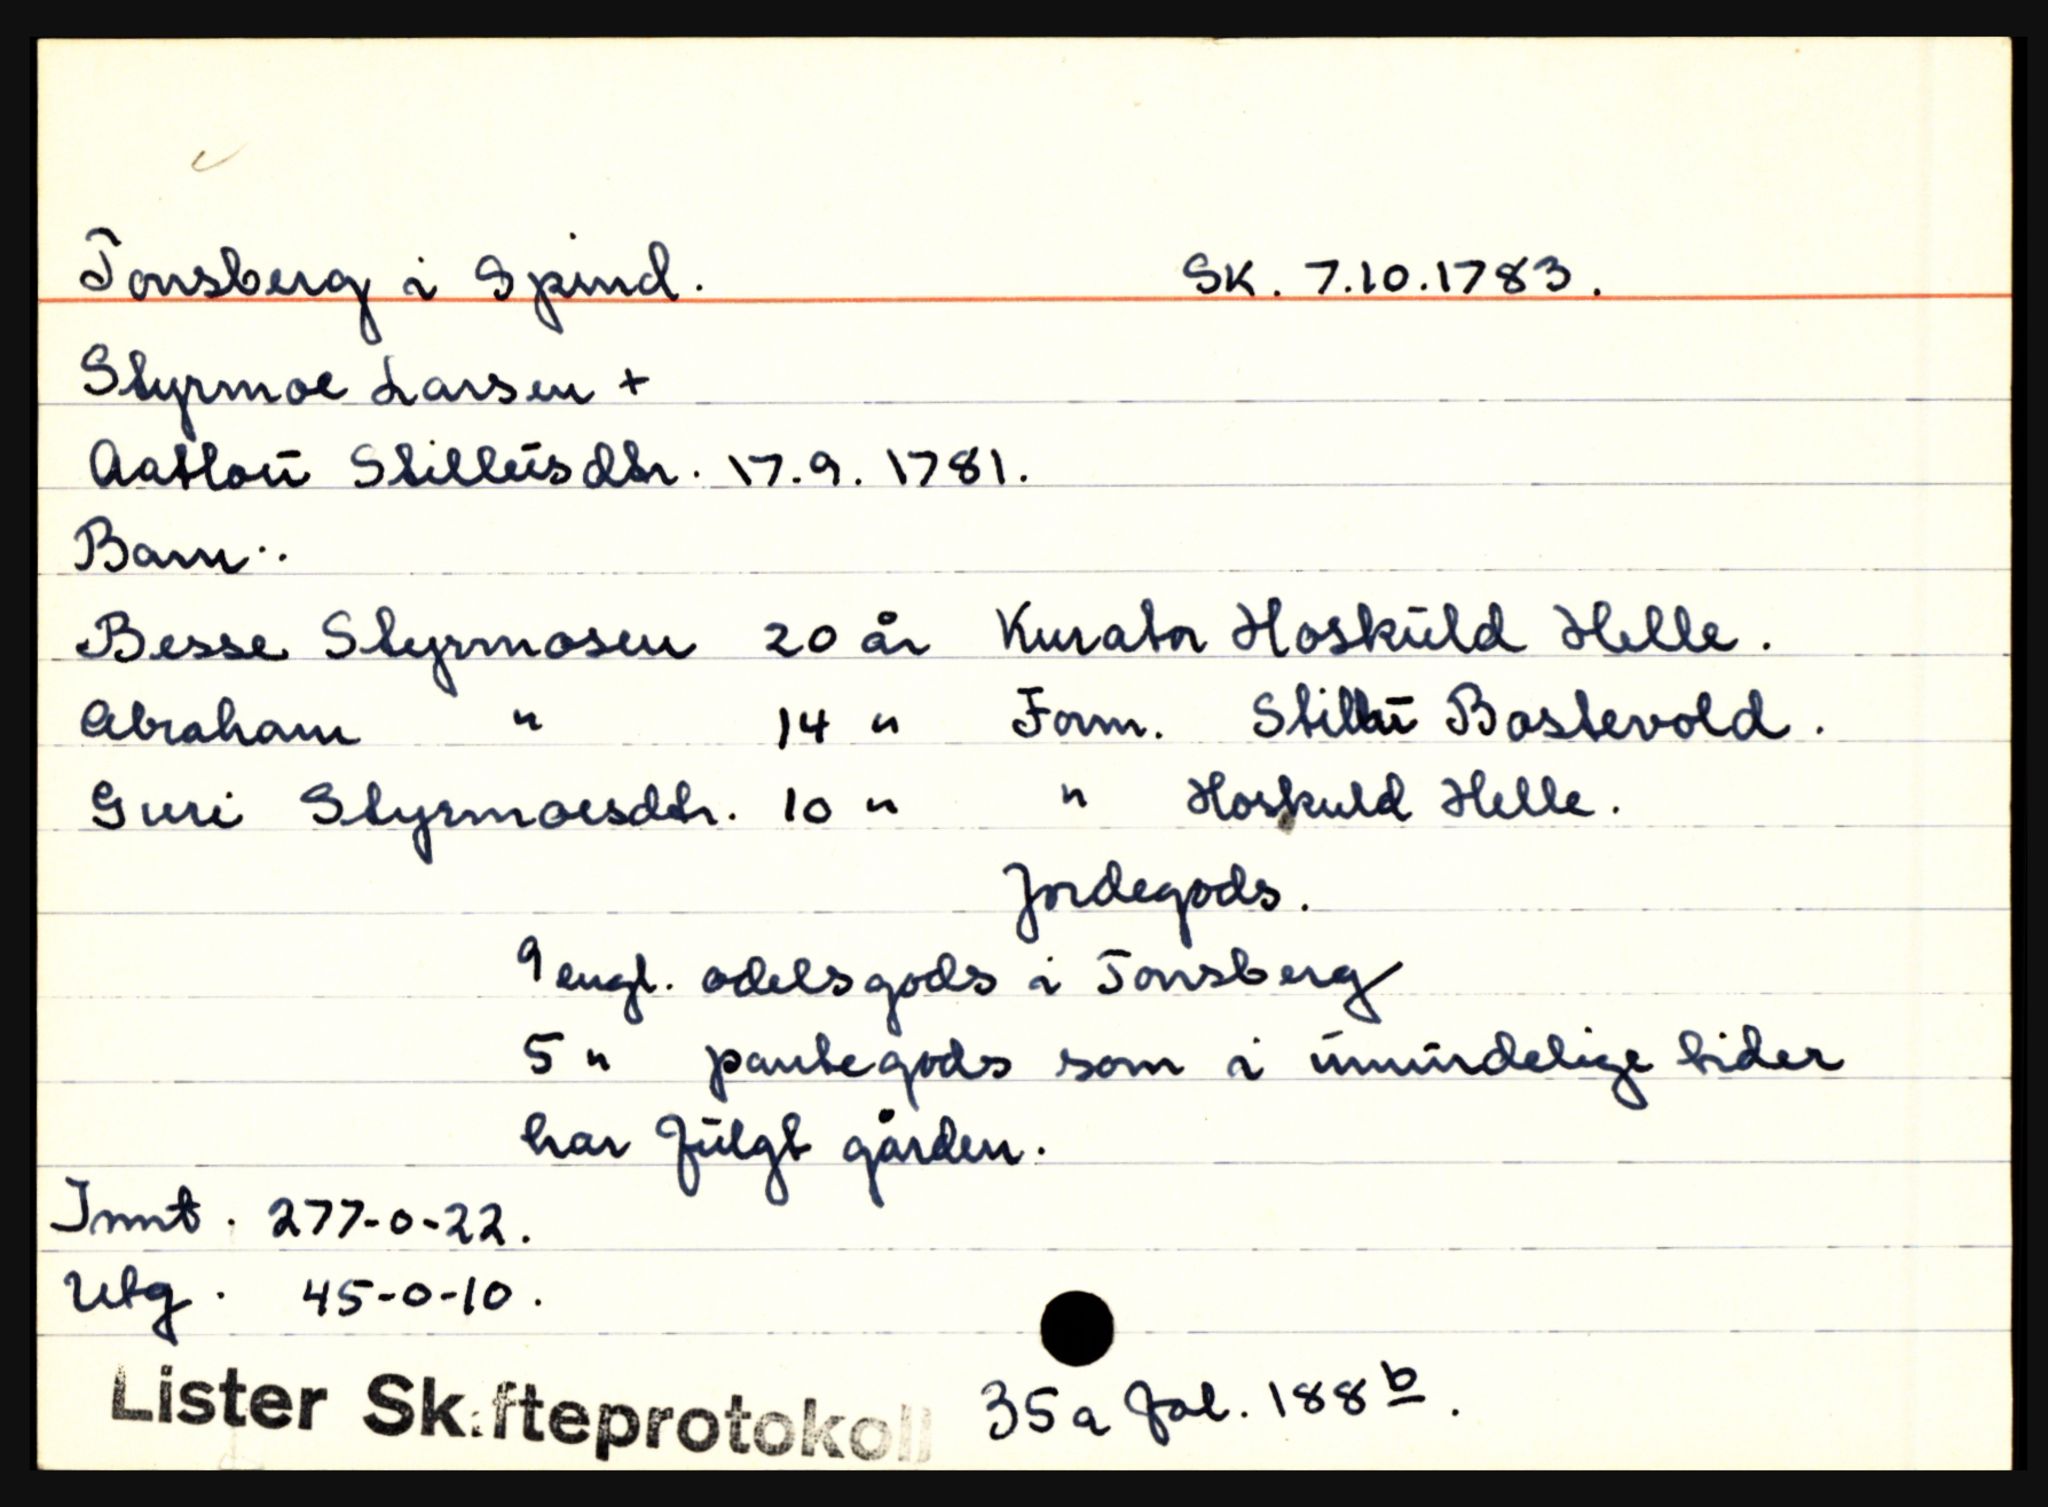 Tonsberg i Spind. SK. 7.10.1783.
Styrmoe Larsen +
Aatloū Stilleūsdtr. 17.9.1781.
Barn:
Besse Styrmosen 20 år Kurator Hoskūld Helle.
Abraham " 14 " Form. Stilleū Bostevold.
Guri Styrmoesdtr. 10 " " Hoskuld Helle.
Jordegods.
9 engl. odelsgods i Tonsberg
5 " pantegods som i ūmindelige tider
har fūlgt gården.
Innt. 277-0-22.
Utg. 45-0-10.
Lister Skifteprotokoll 35a fol. 188 b.